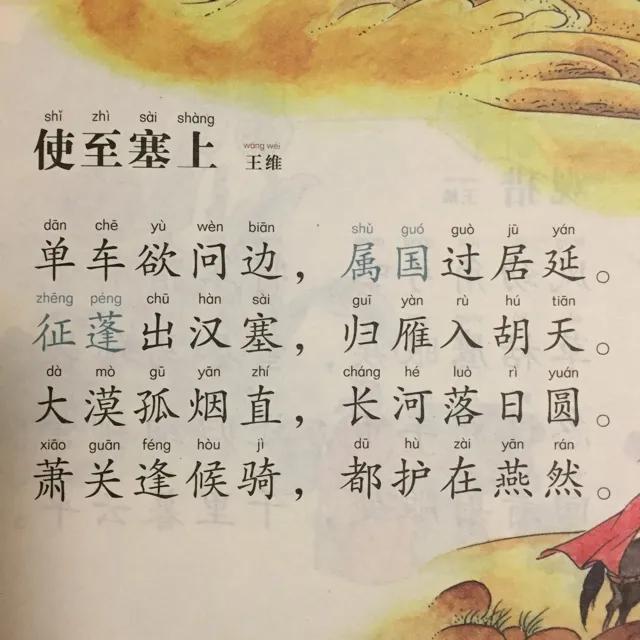 shǐ zhì sài shàng
使至塞上
wáng wéi
王维
dān chē yù wèn biān shǔ guó guò jū yán
单车欲问边，属国过居延。
zhēng péng chū hàn sài guī yàn rù hú tiān
征蓬出汉塞，归雁入胡天。
dà mò gū yān zhí cháng hé luò rì yuán
大漠孤烟直，长河落日圆。
xiāo guān féng hòu jì dū hù zài yān rán
萧关逢候骑，都护在燕然。